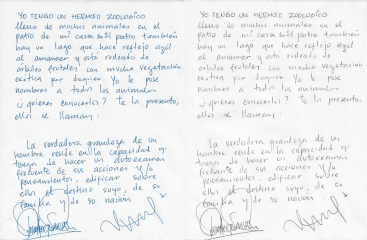 YO TENGO UN HERMOSO ZOOLOGICO
lleno de muchos animales en el
patio de mi casa el patio tambien
hay un lago que hace reflejo azul
al amanecer y esta rodeado de
arboles frutales con mucha vegetación
exótica por doquier. Yo le puse
nombres a todos los animales
¿quieres conocerlos? Te los presento,
ellos se llaman:
La verdadera grandeza de un
hombre reside en la capacidad q
tenga de hacer un autoexamen
frecuente de sus acciones y/o
pensamientos, edificar sobre
ellos el destino suyo, de su
familia y de su nación
YO TENGO UN HERMOSO ZOOLOGICO
lleno de muchos animales en el
patio de mi casa el patio tambien
hay un lago que hace reflejo azul
al amanecer y esta rodeado de
arboles frutales con mucha vegetación
exótica por doquier. Yo le puse
nombres a todos los animales
¿quieres conocerlos? Te los presento,
ellos se llaman:
La verdadera grandeza de un
hombre reside en la capacidad q
tenga de hacer un autoexamen
frecuente de sus acciones y/o
pensamientos, edificar sobre
ellos el destino suyo, de su
familia y de su nación